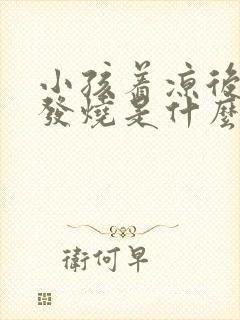 小孩着涼後
發燒是什麼
衛何早